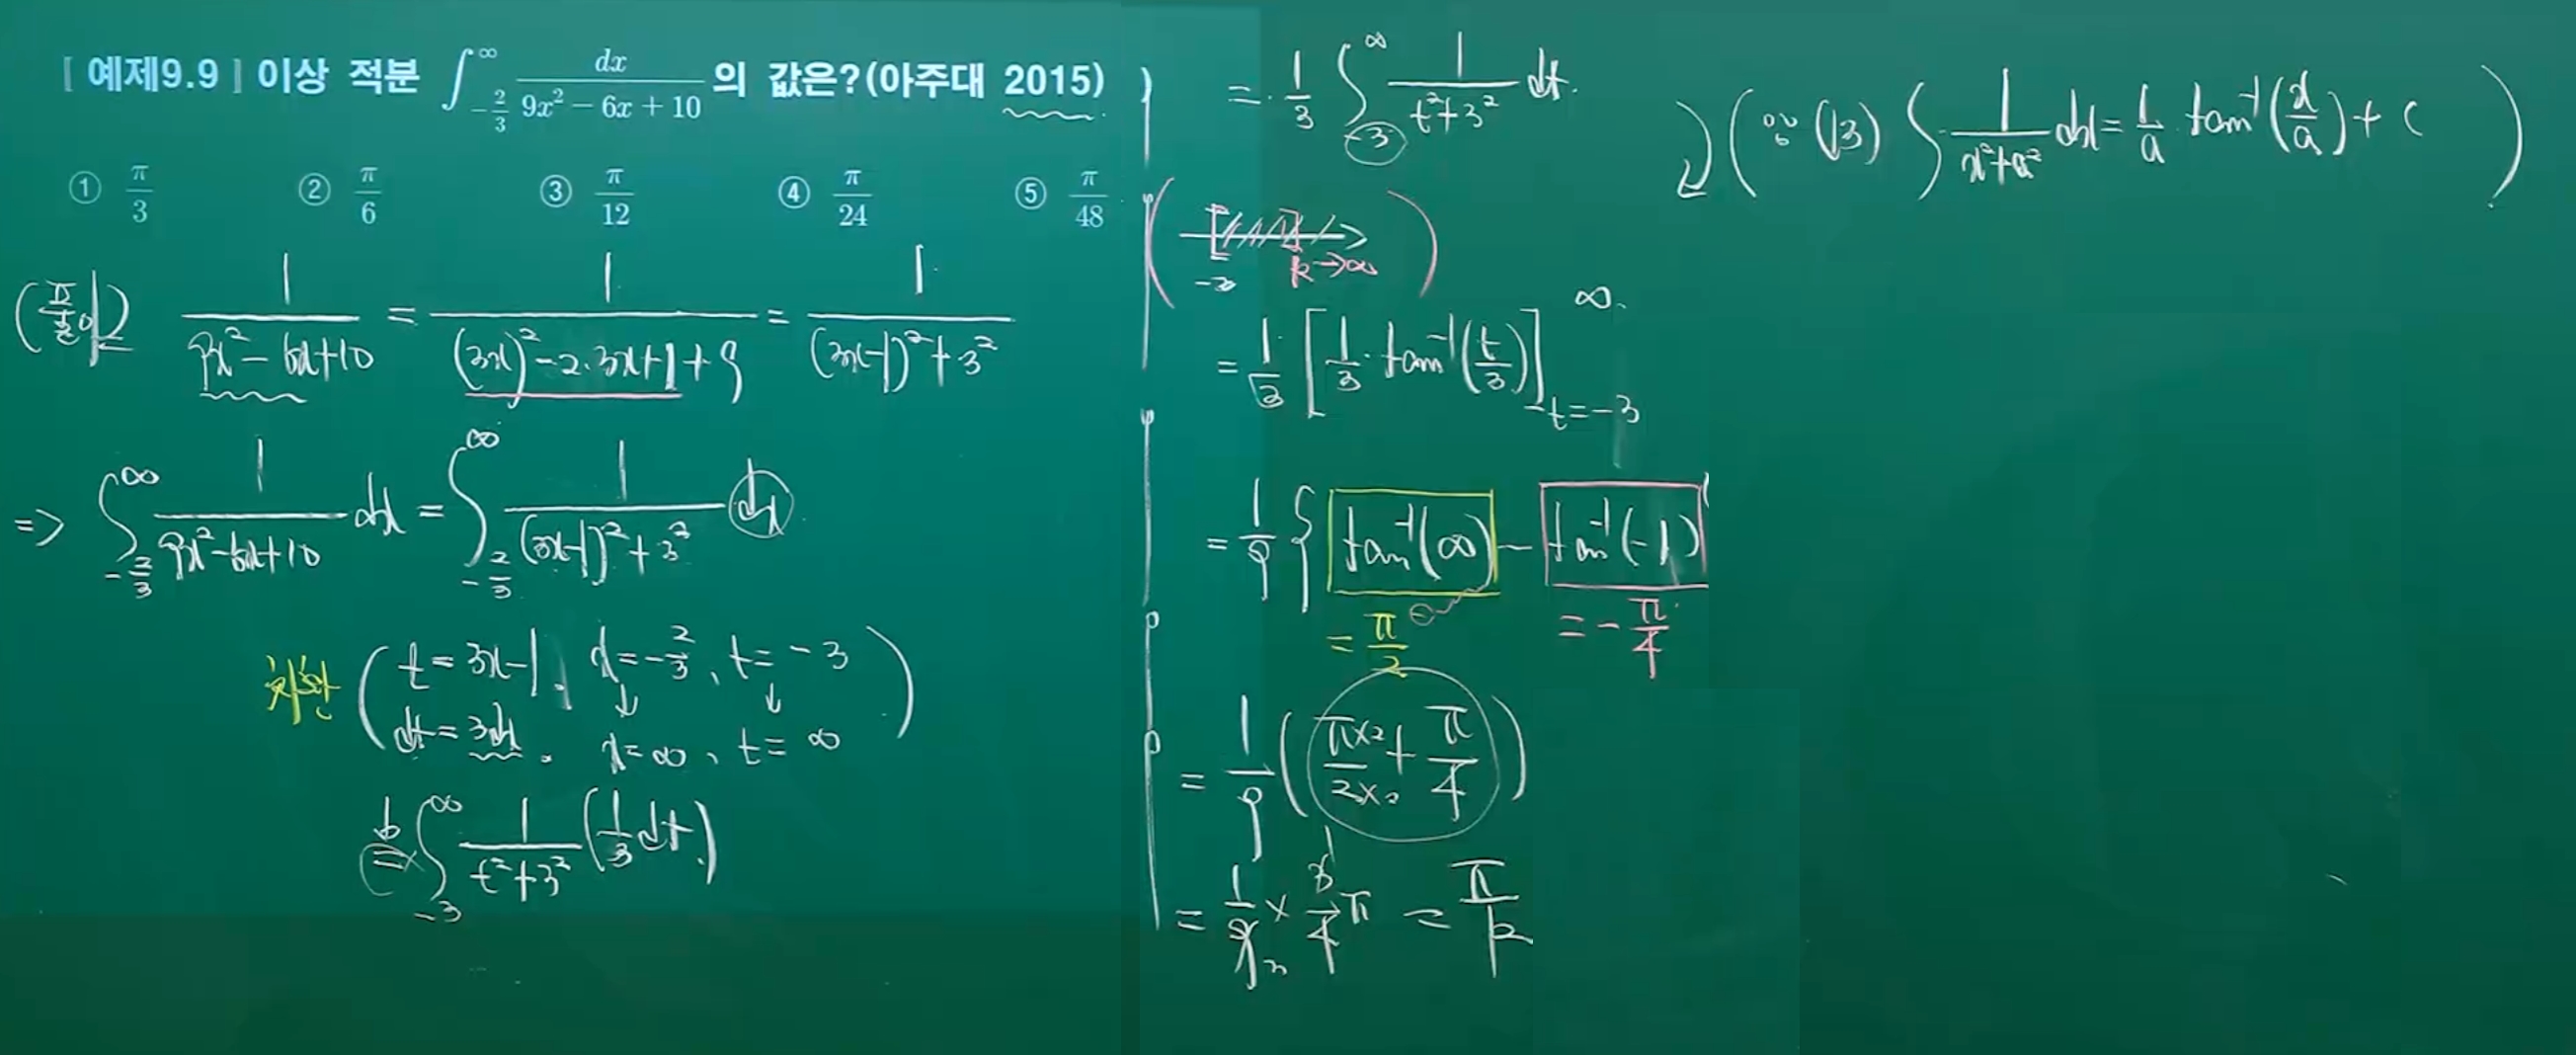 [ 예제9.9 ] 이상 적분 ∫_{-2/3}^{∞} dx/(9x² − 6x + 10) 의 값은?(아주대 2015)
① π/3 ② π/6 ③ π/12 ④ π/24 ⑤ π/48
(풀이) 1/(9x² − 6x + 10) = 1/((3x)² − 2·3x + 1 + 9) = 1/((3x−1)² + 3²)
=> ∫_{-2/3}^{∞} 1/(9x² − 6x + 10) dx = ∫_{-2/3}^{∞} 1/((3x−1)² + 3²) dx
치환 ( t = 3x−1, x = −2/3, t = −3
↓ ↓
dt = 3dx. x = ∞, t = ∞ )
= ∫_{-3}^{∞} 1/(t² + 3²) (1/3 dt)
= 1/3 ∫_{-3}^{∞} 1/(t² + 3²) dt.
(∵ (13) ∫ 1/(x² + a²) dx = 1/a tan⁻¹(x/a) + C )
( −3 k→∞ )
= 1/3 [ 1/3 · tan⁻¹(t/3) ]_{t=−3}^{∞}
= 1/9 { tan⁻¹(∞) − tan⁻¹(−1)
= π/2 = −π/4
= 1/9 ( π×2/2×2 + π/4 )
= 1/9 × 3/4 π = π/12